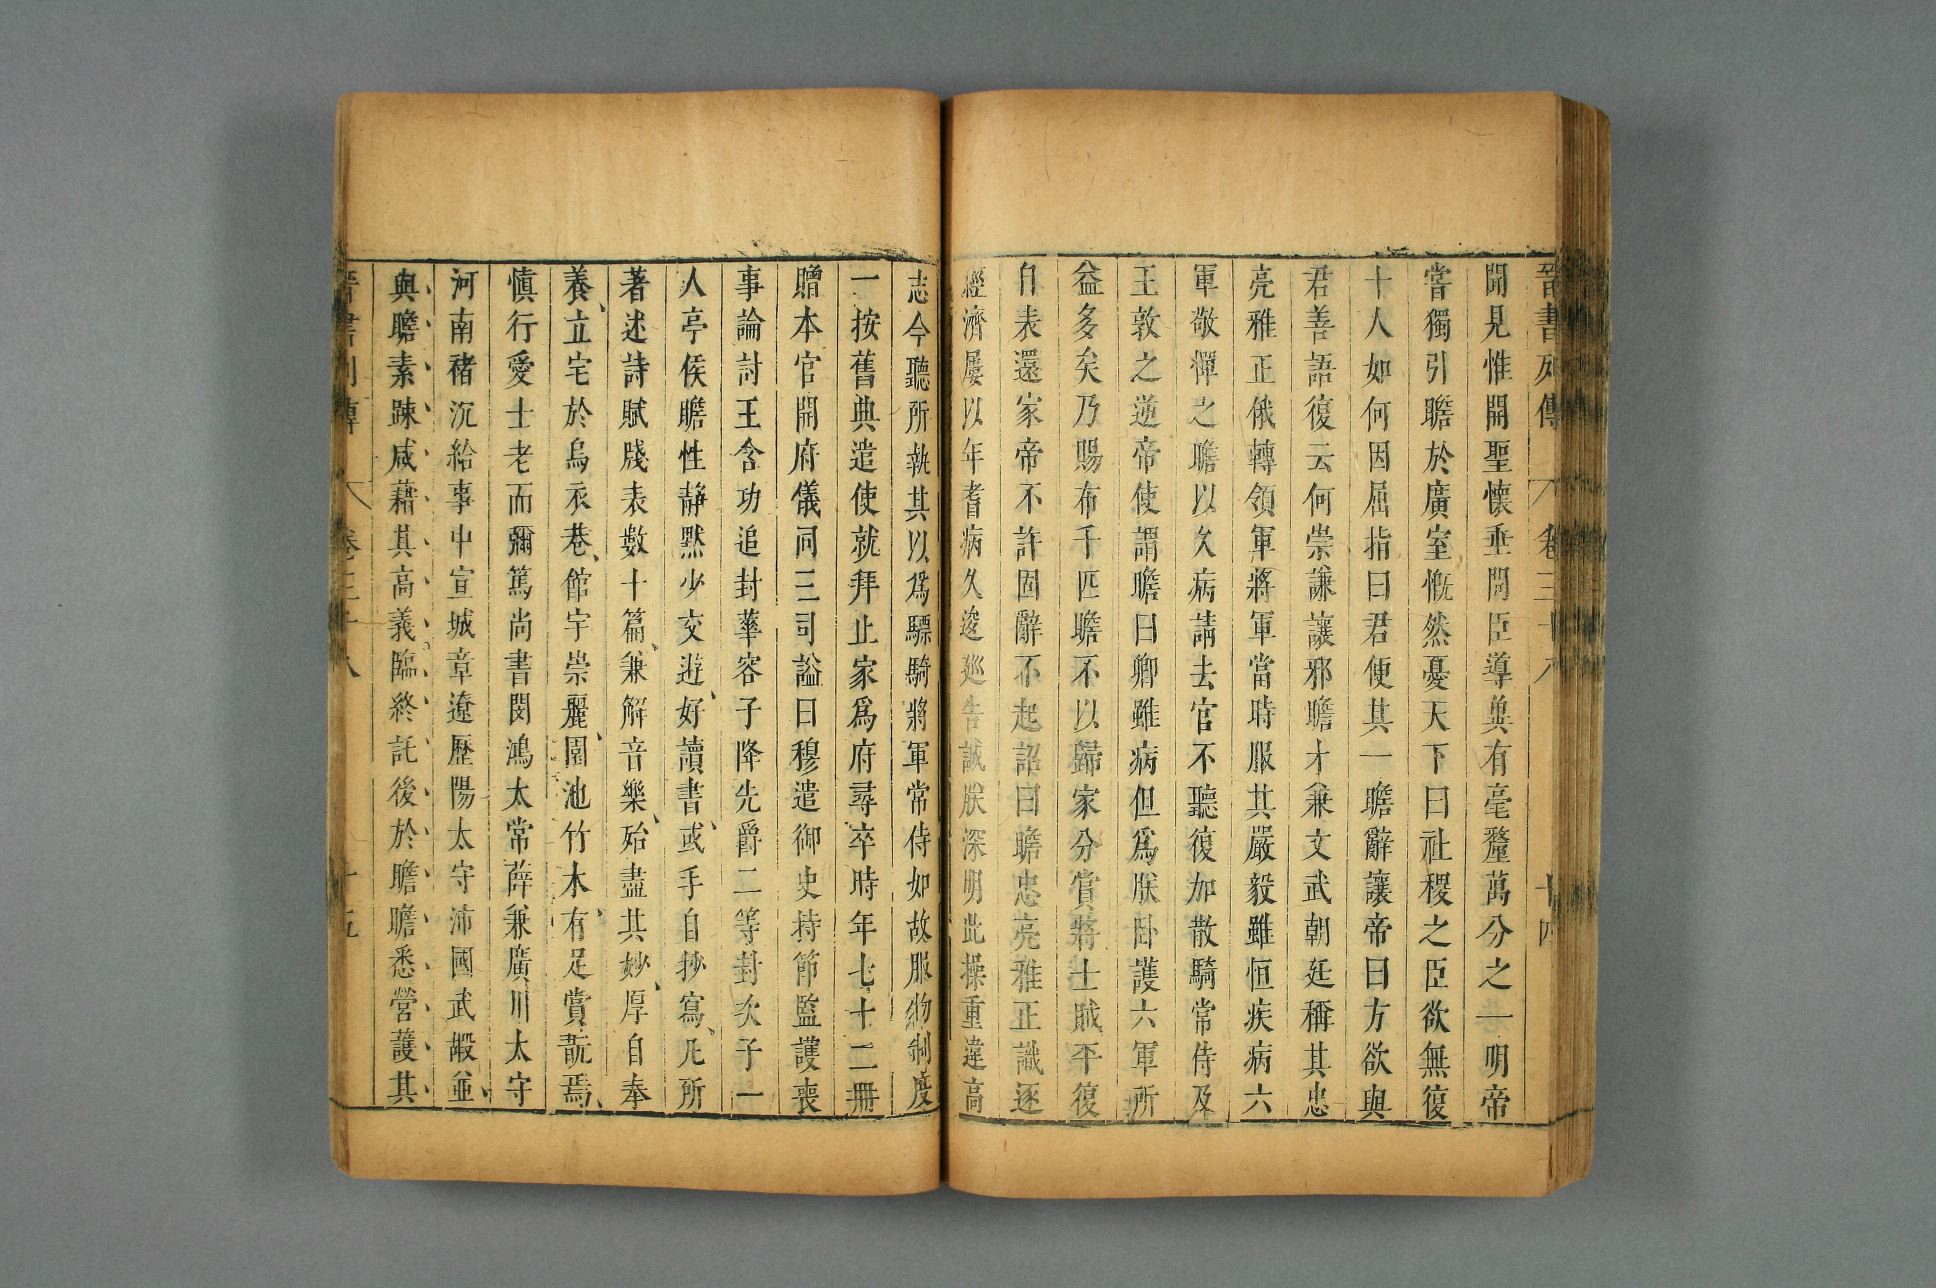 晉書列傳 卷三十八 十四
開見惟開聖懷垂問臣導冀有毫釐萬分之一明帝
嘗獨引瞻於廣室慨然憂天下曰社稷之臣欲無復
十人如何因屈指曰君便其一瞻辭讓帝曰方欲與
君善語復云何崇謙讓邪瞻才兼文武朝廷稱其忠
亮雅正俄轉領軍將軍當時服其嚴毅雖恒疾病六
軍敬憚之瞻以久病請去官不聽復加散騎常侍及
王敦之逆帝使謂瞻曰卿雖病但爲朕臥護六軍所
益多矣乃賜布千匹瞻不以歸家分賞將士賊平復
自表還家帝不許固辭不起詔曰瞻忠亮雅正識逐
經濟屢以年耆病久逡巡告誠朕深明此操重違高
志今聽所執其以爲驃騎將軍常侍如故服物制度
一按舊典遣使就拜止家爲府尋卒時年七十二冊
贈本官開府儀同三司謚曰穆遣御史持節監護喪
事論討王含功追封華容子降先爵二等封次子一
人亭侯瞻性靜默少交遊好讀書或手自抄寫凡所
著述詩賦牋表數十篇兼解音樂殆盡其妙厚自奉
養立宅於烏衣巷館宇崇麗園池竹木有足賞翫焉
慎行愛士老而彌篤尚書閔鴻太常薛兼廣川太守
河南褚沉給事中宣城章遼歷陽太守沛國武嘏並
與瞻素踈咸藉其高義臨終託後於瞻瞻悉營護其
晉書列傳 卷三十八 十五